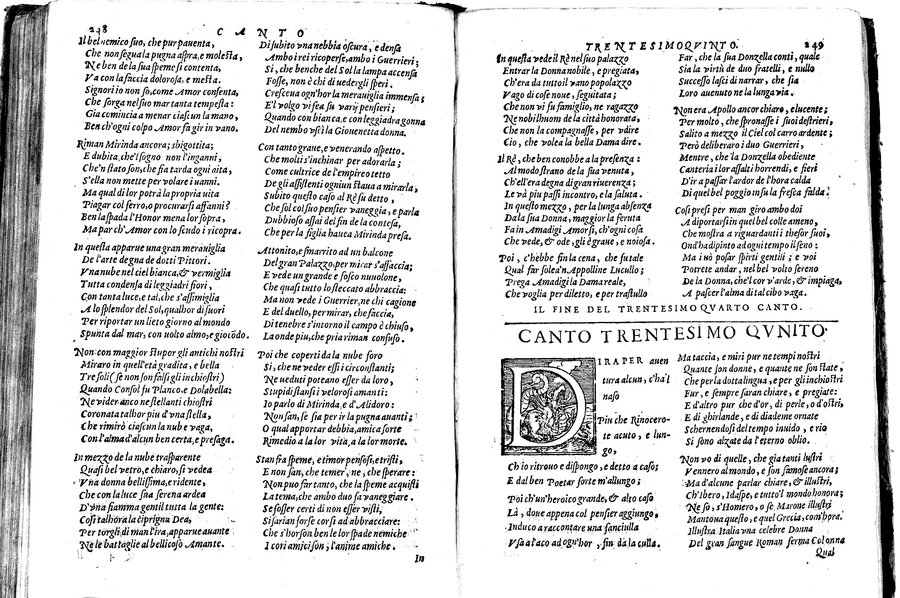 248 CANTO
Il bel nemico suo, che pur pauenta,
Che non segua la pugna aspra, e molesta,
Ne ben de la sua speme si contenta,
Va con la faccia dolorosa, e mesta.
Signori io non so, come Amor consenta,
Che sorga nel suo mar tanta tempesta:
Gia comincia a menar ciascun la mano,
Ben ch'ogni colpo Amor fa gir in vano.
Riman Mirinda ancora; sbigottita;
E dubita, che'l sogno non l'inganni,
Che'n stato son, che fia tarda ogni aita,
S'ella non mette per volare i vanni.
Ma qual di lor potrà la propria uita
Piagar col ferro, o procurarsi affanni?
Ben la spada l'Honor mena lor sopra,
Ma par ch'Amor con lo scudo i ricopra.
In questa apparue una gran merauiglia
De l'arte degna de dotti Pittori.
Vna nube nel ciel bianca, & vermiglia
Tutta condensa di leggiadri fiori,
Con tanta luce, e tal, che s'assimiglia
A lo splendor del Sol, qualhor di fuori
Per riportar un lieto giorno al mondo
Spunta dal mar, con uolto almo, e giocōdo.
Non con maggior stupor gli antichi nostri
Miraro in quell'età gradita, e bella
Tre soli (se non son falsi gli inchiostri)
Quando Consol fu Planco, e Dolabella:
Ne vider anco ne stellanti chiostri
Coronata talhor piu d'vna stella,
Che rimirò ciascun la nube vaga,
Con l'alma d'alcun ben certa, e presaga.
In mezzo de la nube trasparente
Quasi bel vetro, e chiaro, si vedea
Vna donna bellissima, e ridente,
Che con la luce sua serena ardea
D'vna fiamma gentil tutta la gente:
Così talhora la ciprigna Dea,
Per torgli di man l'ira, apparue auante
Ne le battaglie al bellicoso Amante.
Di subito vna nebbia oscura, e densa
Ambo i rei ricoperse, ambo i Guerrieri;
Si, che benche del Sol la lampa accensa
Fosse, non è chi di uedergli speri.
Crescea ogn'hor la merauiglia immensa;
E'l volgo vi fea su varij pensieri;
Quando con bianca, e con leggiadra gonna
Del nembo vscì la Giouenetta donna.
Con tanto graue, e venerando aspetto.
Che molti s'inchinar per adorarla;
Come cultrice de l'empireo tetto
De gli assistenti ogniun staua a mirarla,
Subito questo caso al Rè fu detto,
Che sol col suo pensier vaneggia, e parla
Dubbioso assai del fin de la contesa,
Che per la figlia hauea Mirinda presa.
Attonito, e smarrito ad un balcone
Del gran Palazzo, per mirar s'affaccia;
E vede un grande e fosco nuuolone,
Che quasi tutto lo steccato abbraccia:
Ma non vede i Guerrier, ne chi cagione
E del duello, per mirar, che faccia,
Di tenebre s'intorno il campo è chiuso,
La onde piu, che pria riman confuso.
Poi che coperti da la nube foro
Si, che ne veder essi i circonstanti;
Ne ueduti poteano esser da loro,
Stupidi stansi i velorosi amanti:
Io parlo di Mirinda, e d'Alidoro:
Non san, se sia per ir la pugna auanti;
O qual apportar debbia, amica sorte
Rimedio a la lor vita, a la lor morte.
Stan fra speme, e timor pensosi, e tristi,
E non san, che temer, ne, che sperare:
Non puo far tanto, che la speme acquisti
La tema, che ambo duo fa vaneggiare.
Se fosser certi di non esser visti,
Si sarian forse corsi ad abbracciare:
Che s'horson ben le lor spade nemiche
I cori amici son; l'anime amiche.
In
TRENTESIMOQVINTO. 249
In questa vede il Rè nel suo palazzo
Entrar la Donna nobile, e pregiata,
Ch'era da tutto il vano popolazzo
Vago di cose noue, seguitata;
Che non vi fu famiglio, ne ragazzo
Ne nobil huom de la città honorata,
Che non la compagnasse, per vdire
Cio, che volea la bella Dama dire.
Il Rè, che ben conobbe a la presenza:
Al modo strano de la sua venuta,
Ch'ell'era degna di gran riuerenza;
Le và piu passi incontro, e la saluta.
In questo mezzo, per la lunga absenza
Da la sua Donna, maggior la feruta
Fa in Amadigi Amor sì, ch'ogni cosa
Che vede, & ode, gli è graue, e noiosa.
Poi, c'hebbe fin la cena, che fu tale
Qual far solea'n Appolline Lucullo;
Prega Amadigi la Dama reale,
Che voglia per diletto, e per trastullo
Far, che la sua Donzella conti, quale
Sia la virtù de duo fratelli, e nullo
Successo lasci di narrar, che sia
Loro auenuto ne la lunga via.
Non era Apollo ancor chiaro, e lucente;
Per molto, che spronasse i suoi destrieri,
Salito a mezzo il Ciel col carro ardente;
Però deliberaro i duo Guerrieri,
Mentre, che la Donzella obediente
Canteria lor assalti horrendi, e fieri
D'ir a passar l'ardor de l'hora calda
Di quel bel poggio in su la fresca falda.
Cosi presi per man giro ambo doi
A diportarsi in quel bel colle ameno,
Che mostra a riguardanti i thesor suoi,
Ond'ha dipinto ad ogni tempo il seno:
Ma i uò posar spirti gentili; e voi
Potrete andar, nel bel volto sereno
De la Donna, che'l cor v'arde, & impiaga,
A pascer l'alma di tal cibo vaga.
IL FINE DEL TRENTESIMO QVARTO CANTO.
CANTO TRENTESIMO QVNITO.
DIRAPER auen
tura alcun, c'ha'l
naso
Piu che Rinocero-
te acuto, e lun-
go,
Ch io ritrouo e dispongo, e detto a caso;
E dal ben Poetar forte m'allungo;
Poi ch'un'heroico grande, & alto caso
Là, doue appena col pensier aggiungo,
Induco a raccontare una fanciulla
Vsa a l'aco ad ogn'hor, fin da la culla.
Ma taccia, e miri pur ne tempi nostri
Quante son donne, e quante ne son state,
Che per la dotta lingua, e per gli inchiostri
Fur, e sempre saran chiare, e pregiate:
E d'altro pur che d'or, di perle, o d'ostri,
E di ghirlande, e di diademe ornate
Schernendosi del tempo inuido, e rio
Si sono alzate da l'eterno oblio.
Non vo di quelle, che gia tanti lustri
Vennero al mondo, e son famose ancora;
Ma d'alcune parlar chiare, & illustri,
Ch'ibero, Idaspe, e tutto'l mondo honora;
Ne so, s'Homero, o se Marone illustri
Mantona questo, e quel Grecia, com'hora
Illustra Italia vna celebre Donna
Del gran sangue Roman ferma Colonna
Qual